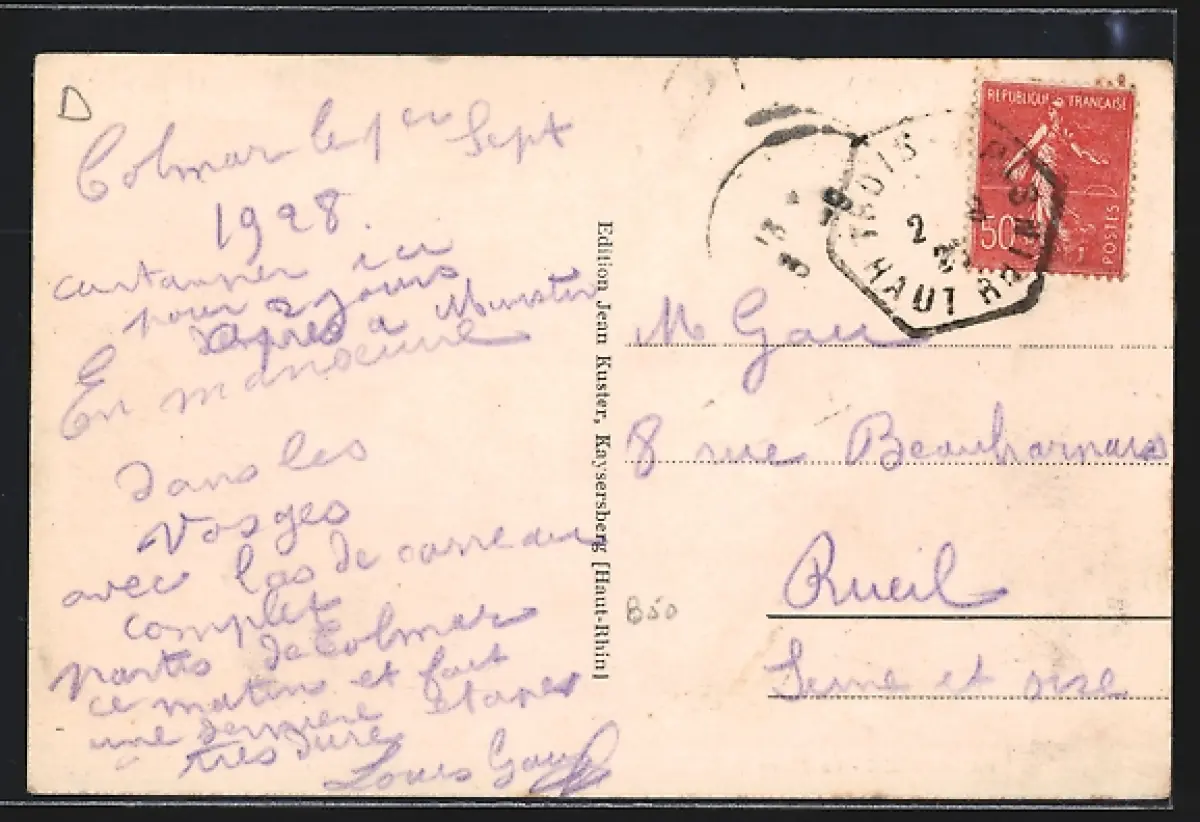 D
Colmar le 1er Sept
1928.
cantonner ici
pour 2 jours
après a Munster
En manoeuvre
dans les
Vosges
avec l'as de carreau
complet
partis de Colmar
ce matin et fait
une dernière étapes
très dure
Louis Gau
Edition Jean Kuster, Kaysersberg [Haut-Rhin]
REPUBLIQUE FRANÇAISE
50
POSTES
TROIS
2
HAUT RHIN
M Gau
8 rue Beauharnais
Rueil
Seine et oise
B50